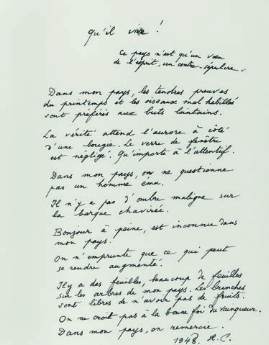 qu'il vive !
Ce pays n'est qu'un vœu
de l'esprit, un contre-sépulcre.
Dans mon pays, les tendres preuves
du printemps et les oiseaux mal habillés
sont préférés aux buts lointains.
La vérité attend l'aurore à côté
d'une bougie. Le verre de fenêtre
est négligé. Qu'importe à l'attentif.
Dans mon pays, on ne questionne
pas un homme ému.
Il n'y a pas d'ombre maligne sur
la barque chavirée.
Bonjour à peine, est inconnu dans
mon pays.
On n'emprunte que ce qui peut
se rendre augmenté.
Il y a des feuilles, beaucoup de feuilles
sur les arbres de mon pays. Les branches
sont libres de n'avoir pas de fruits.
On ne croit pas à la bonne foi du vainqueur.
Dans mon pays, on remercie.
1948. R.C.